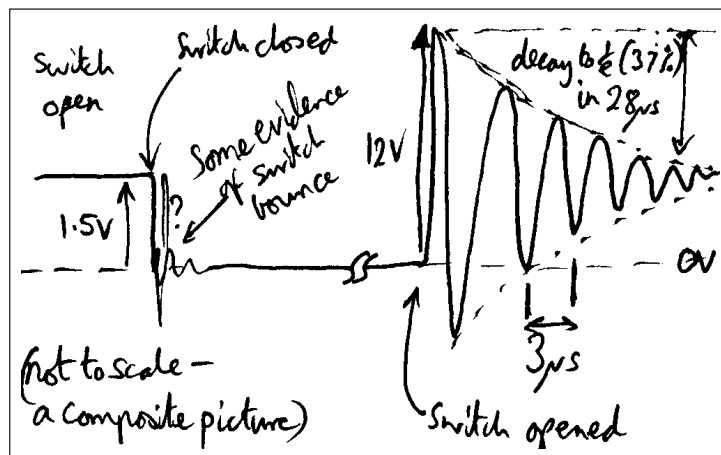 switch closed
switch
open
Some evidence
of switch
bounce
?
1.5V
12V
decay to 1/e (37%)
in 28µs
0V
3µs
(not to scale –
a composite picture)
switch opened